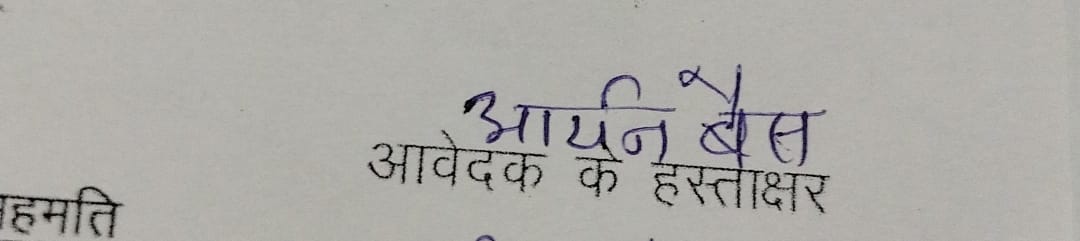 आर्यन बैस
आवेदक के हस्ताक्षर
हमति